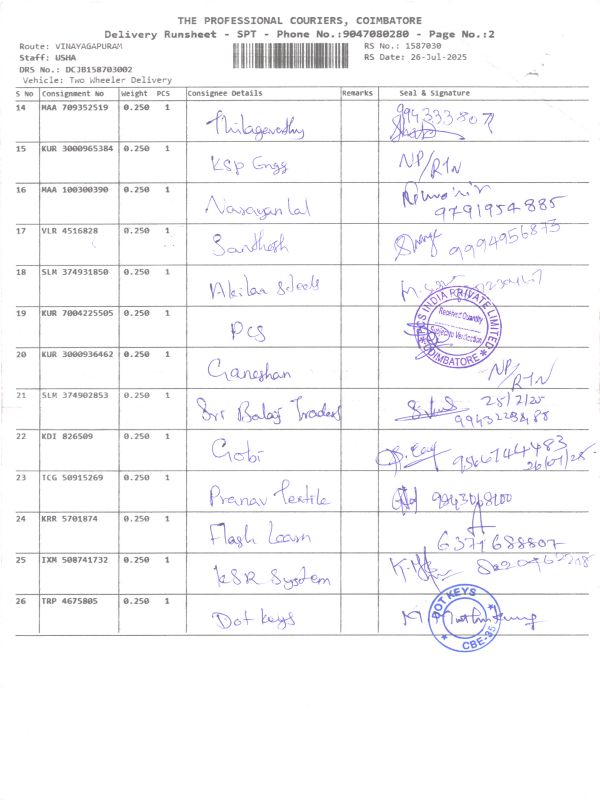 THE PROFESSIONAL COURIERS, COIMBATORE
Delivery Runsheet - SPT - Phone No.:9047080280 - Page No.:2
Route: VINAYAGAPURAM
RS No.: 1587030
Staff: USHA
RS Date: 26-Jul-2025
DRS No.: DCJB158703002
Vehicle: Two Wheeler Delivery
S No Consignment No Weight PCS Consignee Details Remarks Seal & Signature
14 MAA 709352519 0.250 1 Thilagavathy 9943338071
15 KUR 3000965384 0.250 1 KSP Engg NP/RTN
16 MAA 100300390 0.250 1 Narayanlal 9791954885
17 VLR 4516828 0.250 1 Santhosh 9994956873
18 SLM 374931850 0.250 1 Akilan Steels
19 KUR 7004225505 0.250 1 PCS PCS INDIA PRIVATE LIMITED
Received Quantity
Subject to Verification
* COIMBATORE *
20 KUR 3000936462 0.250 1 Ganeshan NP/RTN
21 SLM 374902853 0.250 1 Sri Balaji Traders 25/7/25
22 KDI 826509 0.250 1 Gobi 9566744483
26/07/25
23 TCG 50915269 0.250 1 Pranav Textile
24 KRR 5701874 0.250 1 Flash Learn 6371688807
25 IXM 508741732 0.250 1 KSR System
26 TRP 4675805 0.250 1 Dot Keys DOT KEYS
* CBE-35 *